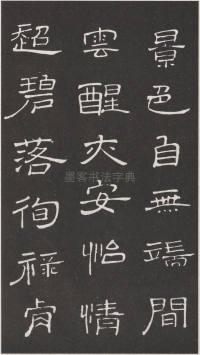 景色自無端間
雲醒安怡情
超碧落徇祿
墨客书法字典